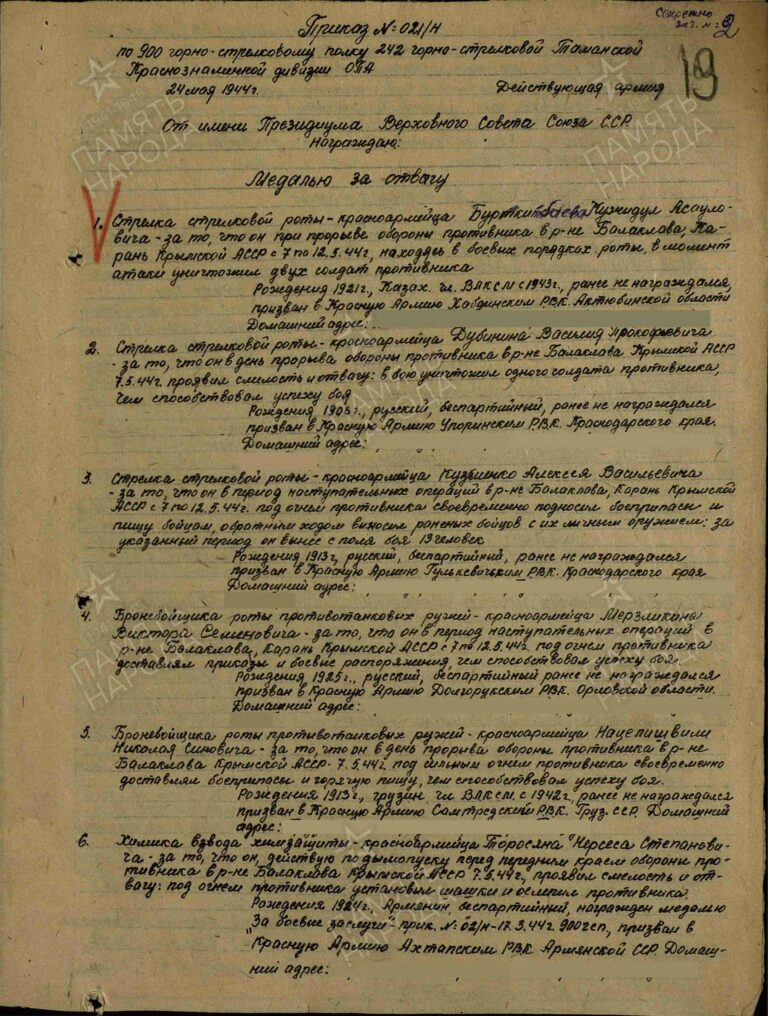 Секретно
экз. №: 2
13
Приказ №: 021/н
по 900 горно-стрелковому полку 242 горно-стрелковой Таманской
Краснознаменной дивизии ОПА
24 мая 1944г. Действующая армия
От имени Президиума Верховного Совета Союза ССР
Награждаю:
Медалью за отвагу
1. Стрелка стрелковой роты - красноармейца Кужидул Асауло-
вича - за то, что он при прорыве обороны противника в р-не Балаклава, Ка-
рань Крымской АССР с 7 по 12.5.44г., находясь в боевых порядках роты, в момент
атаки уничтожил двух солдат противника
Рождения 1921г., Казах. чл. ВЛКСМ с 1943г., ранее не награждался,
призван в Красную Армию Хабдинским РВК. Актюбинской области
Домашний адрес:
2. Стрелка стрелковой роты - красноармейца Дубинина Василия Прокофьевича
- за то, что он в день прорыва обороны противника в р-не Балаклава Крымской АССР
7.5.44г. проявил смелость и отвагу: в бою уничтожил одного солдата противника,
чем способствовал успеху боя
Рождения г., русский, беспартийный, ранее не награждался
призван в Красную Армию Упоринским РВК. Краснодарского края.
Домашний адрес:
3. Стрелка стрелковой роты - красноармейца Алексея Васильевича
- за то, что он в период наступательных операций в р-не Балаклава, Карань Крымской
АССР с 7 по 12.5.44г. под огнем противника своевременно подносил боеприпасы и
пищу бойцам, обратным ходом выносил раненых бойцов с их личным оружием: за
указанный период он вынес с поля боя 13 человек
Рождения 1913г, русский, беспартийный, ранее не награждался
призван в Красную Армию Гулькевичьким РВК. Краснодарского края
Домашний адрес:
4. Бронебойщика роты противотанковых ружей - красноармейца Мерзликина
Виктора Семеновича - за то, что он в период наступательных операций в
р-не Балаклава, Карань Крымской АССР с 7 по 12.5.44г. под огнем противника
доставлял приказы и боевые распоряжения, чем способствовал успеху боя.
Рождения 1925г., русский, беспартийный ранее не награждался
призван в Красную Армию Долгорукским РВК. Орловской области.
Домашний адрес:
5. Бронебойщика роты противотанковых ружей - красноармейца Нацелишвили
Николая Симовича - за то, что он в день прорыва обороны противника в р-не
Балаклава Крымской АССР. 7.5.44г. под сильным огнем противника своевременно
доставлял боеприпасы и горячую пищу, чем способствовал успеху боя.
Рождения 1913г., грузин, чл. ВЛКСМ. с 1942г., ранее не награждался
призван в Красную Армию Самтредским РВК. Груз. ССР. Домашний
адрес:
6. Химика взвода химзащиты - красноармейца Торосяна Нерсеса Степанови-
ча - за то, что он, действуя по дымопуску перед передним краем обороны про-
тивника в р-не Балаклава Крымской АССР 7.5.44г., проявил смелость и от-
вагу: под огнем противника установил шашки и ослепил противника.
Рождения 1924г., Армянин, беспартийный, награжден медалью
„За боевые заслуги" прик. №: 02/н-17.3.44г. 900 гсп, призван в
Красную Армию Ахтапским РВК Армянской ССР. Домаш-
ний адрес:
ПАМЯТЬ
НАРОДА